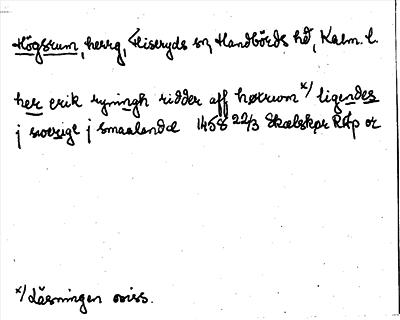 Högsrum, herrg, Hiseryds sn, Handbörds hd, Kalm. l.
her erik ryningh ridder aff høxrwm x/ ligendes
j swerige j smaalandæ 1458 22/3 Skælskør RAp or
x/ Läsningen oviss.